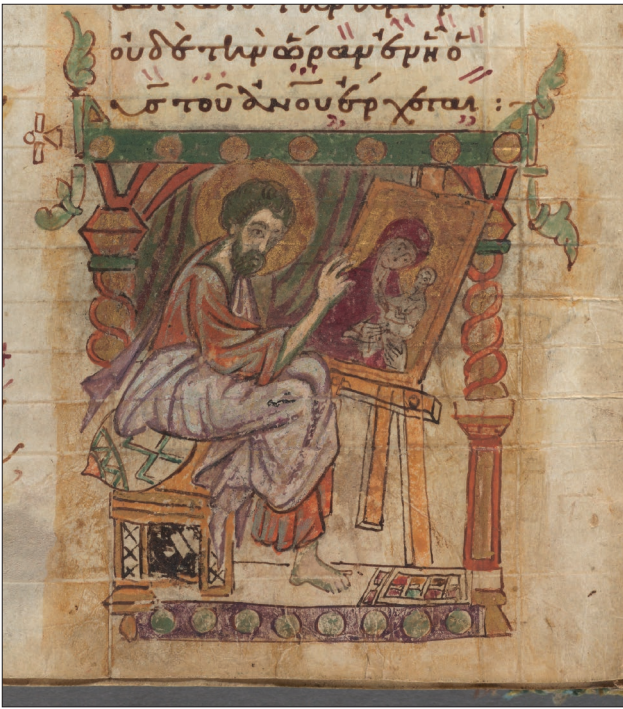 οὐδὲ τὴν ὥραν ἐν ἧ ὁ
υς τοῦ ἀνου ἔρχεται :